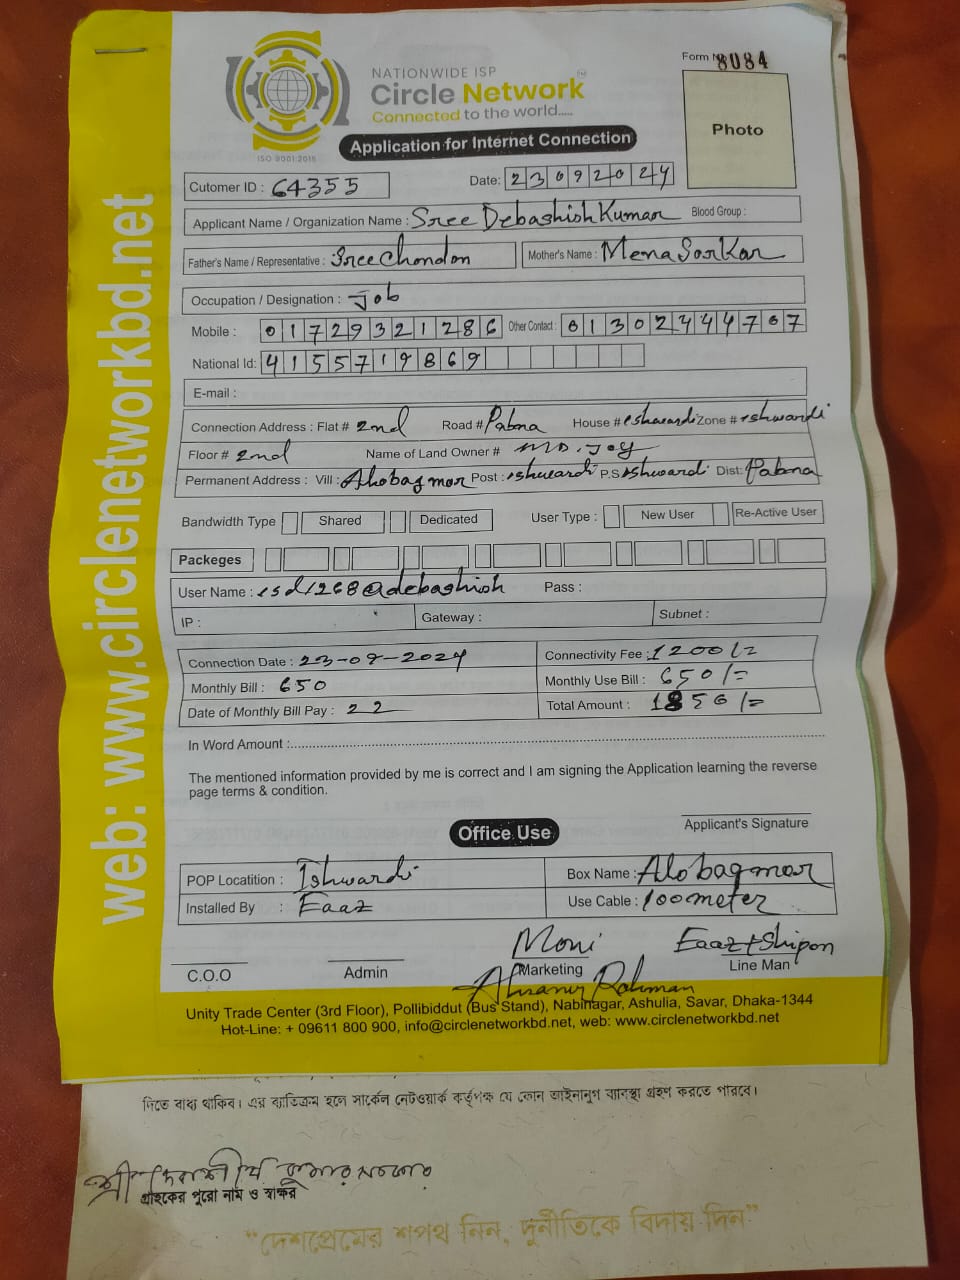 NATIONWIDE ISP
Circle Network™
Connected to the world.....
ISO 9001:2015
Form N 8084
Photo
Application for Internet Connection
Cutomer ID : 64355
Date: 23092024
Applicant Name / Organization Name : Sree Debashish Kumar Blood Group :
Father's Name / Representative : Sree Chondon Mother's Name : Mena Sarkar
Occupation / Designation : Job
Mobile : 01729321286 Other Contact : 01302444707
National Id: 4155719869
E-mail :
Connection Address : Flat # 2nd Road # Pabna House # eshwardi Zone # eshwardi
Floor # 2nd Name of Land Owner # MD. Joy
Permanent Address : Vill : Alobagmor Post : ishwardi P.S ishwardi Dist: Pabna
Bandwidth Type Shared Dedicated User Type : New User Re-Active User
Packeges
User Name : esd1268@debashish Pass :
IP : Gateway : Subnet :
Connection Date : 23-09-2024 Connectivity Fee : 1200/=
Monthly Bill : 650 Monthly Use Bill : 650/=
Date of Monthly Bill Pay : 22 Total Amount : 1850/=
In Word Amount :
The mentioned information provided by me is correct and I am signing the Application learning the reverse
page terms & condition.
Applicant's Signature
Office Use
POP Locatition : Ishwardi Box Name : Alobagmor
Installed By : Eaaz Use Cable : 100meter
Moni Eaaz+Shipon
C.O.O Admin Marketing Line Man
Rahman
Unity Trade Center (3rd Floor), Pollibiddut (Bus Stand), Nabinagar, Ashulia, Savar, Dhaka-1344
Hot-Line: + 09611 800 900, info@circlenetworkbd.net, web: www.circlenetworkbd.net
web: www.circlenetworkbd.net
দিতে বাধ্য থাকিব। এর ব্যতিক্রম হলে সার্কেল নেটওয়ার্ক কর্তৃপক্ষ যে কোন আইনানুগ ব্যবস্থা গ্রহণ করতে পারবে।
শ্রী দেবাশীষ কুমার সরকার
গ্রাহকের পুরো নাম ও স্বাক্ষর
“দেশপ্রেমের শপথ নিন, দুর্নীতিকে বিদায় দিন”